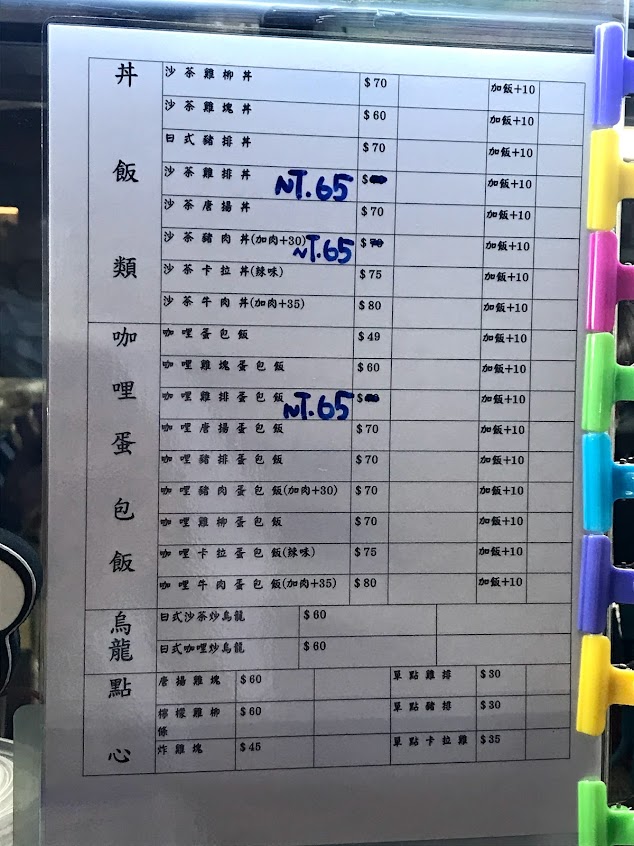 丼飯類
沙茶雞柳丼 $70 加飯+10
沙茶雞塊丼 $60 加飯+10
日式豬排丼 $70 加飯+10
沙茶雞排丼 NT.65 $ 加飯+10
沙茶唐揚丼 $70 加飯+10
沙茶豬肉丼(加肉+30) NT.65 $70 加飯+10
沙茶卡拉丼(辣味) $75 加飯+10
沙茶牛肉丼(加肉+35) $80 加飯+10
咖哩蛋包飯
咖哩蛋包飯 $49 加飯+10
咖哩雞塊蛋包飯 $60 加飯+10
咖哩雞排蛋包飯 NT.65 $ 加飯+10
咖哩唐揚蛋包飯 $70 加飯+10
咖哩豬排蛋包飯 $70 加飯+10
咖哩豬肉蛋包飯(加肉+30) $70 加飯+10
咖哩雞柳蛋包飯 $70 加飯+10
咖哩卡拉蛋包飯(辣味) $75 加飯+10
咖哩牛肉蛋包飯(加肉+35) $80 加飯+10
烏龍
日式沙茶炒烏龍 $60
日式咖哩炒烏龍 $60
點心
唐揚雞塊 $60 單點雞排 $30
檸檬雞柳條 $60 單點豬排 $30
炸雞塊 $45 單點卡拉雞 $35